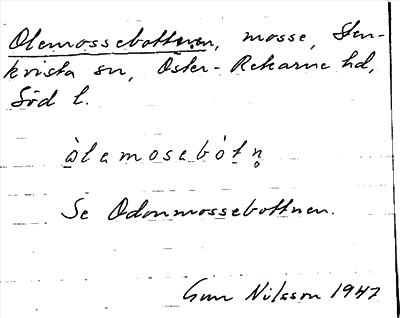 Olemossebottnen, mosse, Sten-
kvista sn, Öster-Rekarne hd,
Söd l.
òlemosebòtn̥
Se Odonmossebottnen.
Gun Nilsson 1947